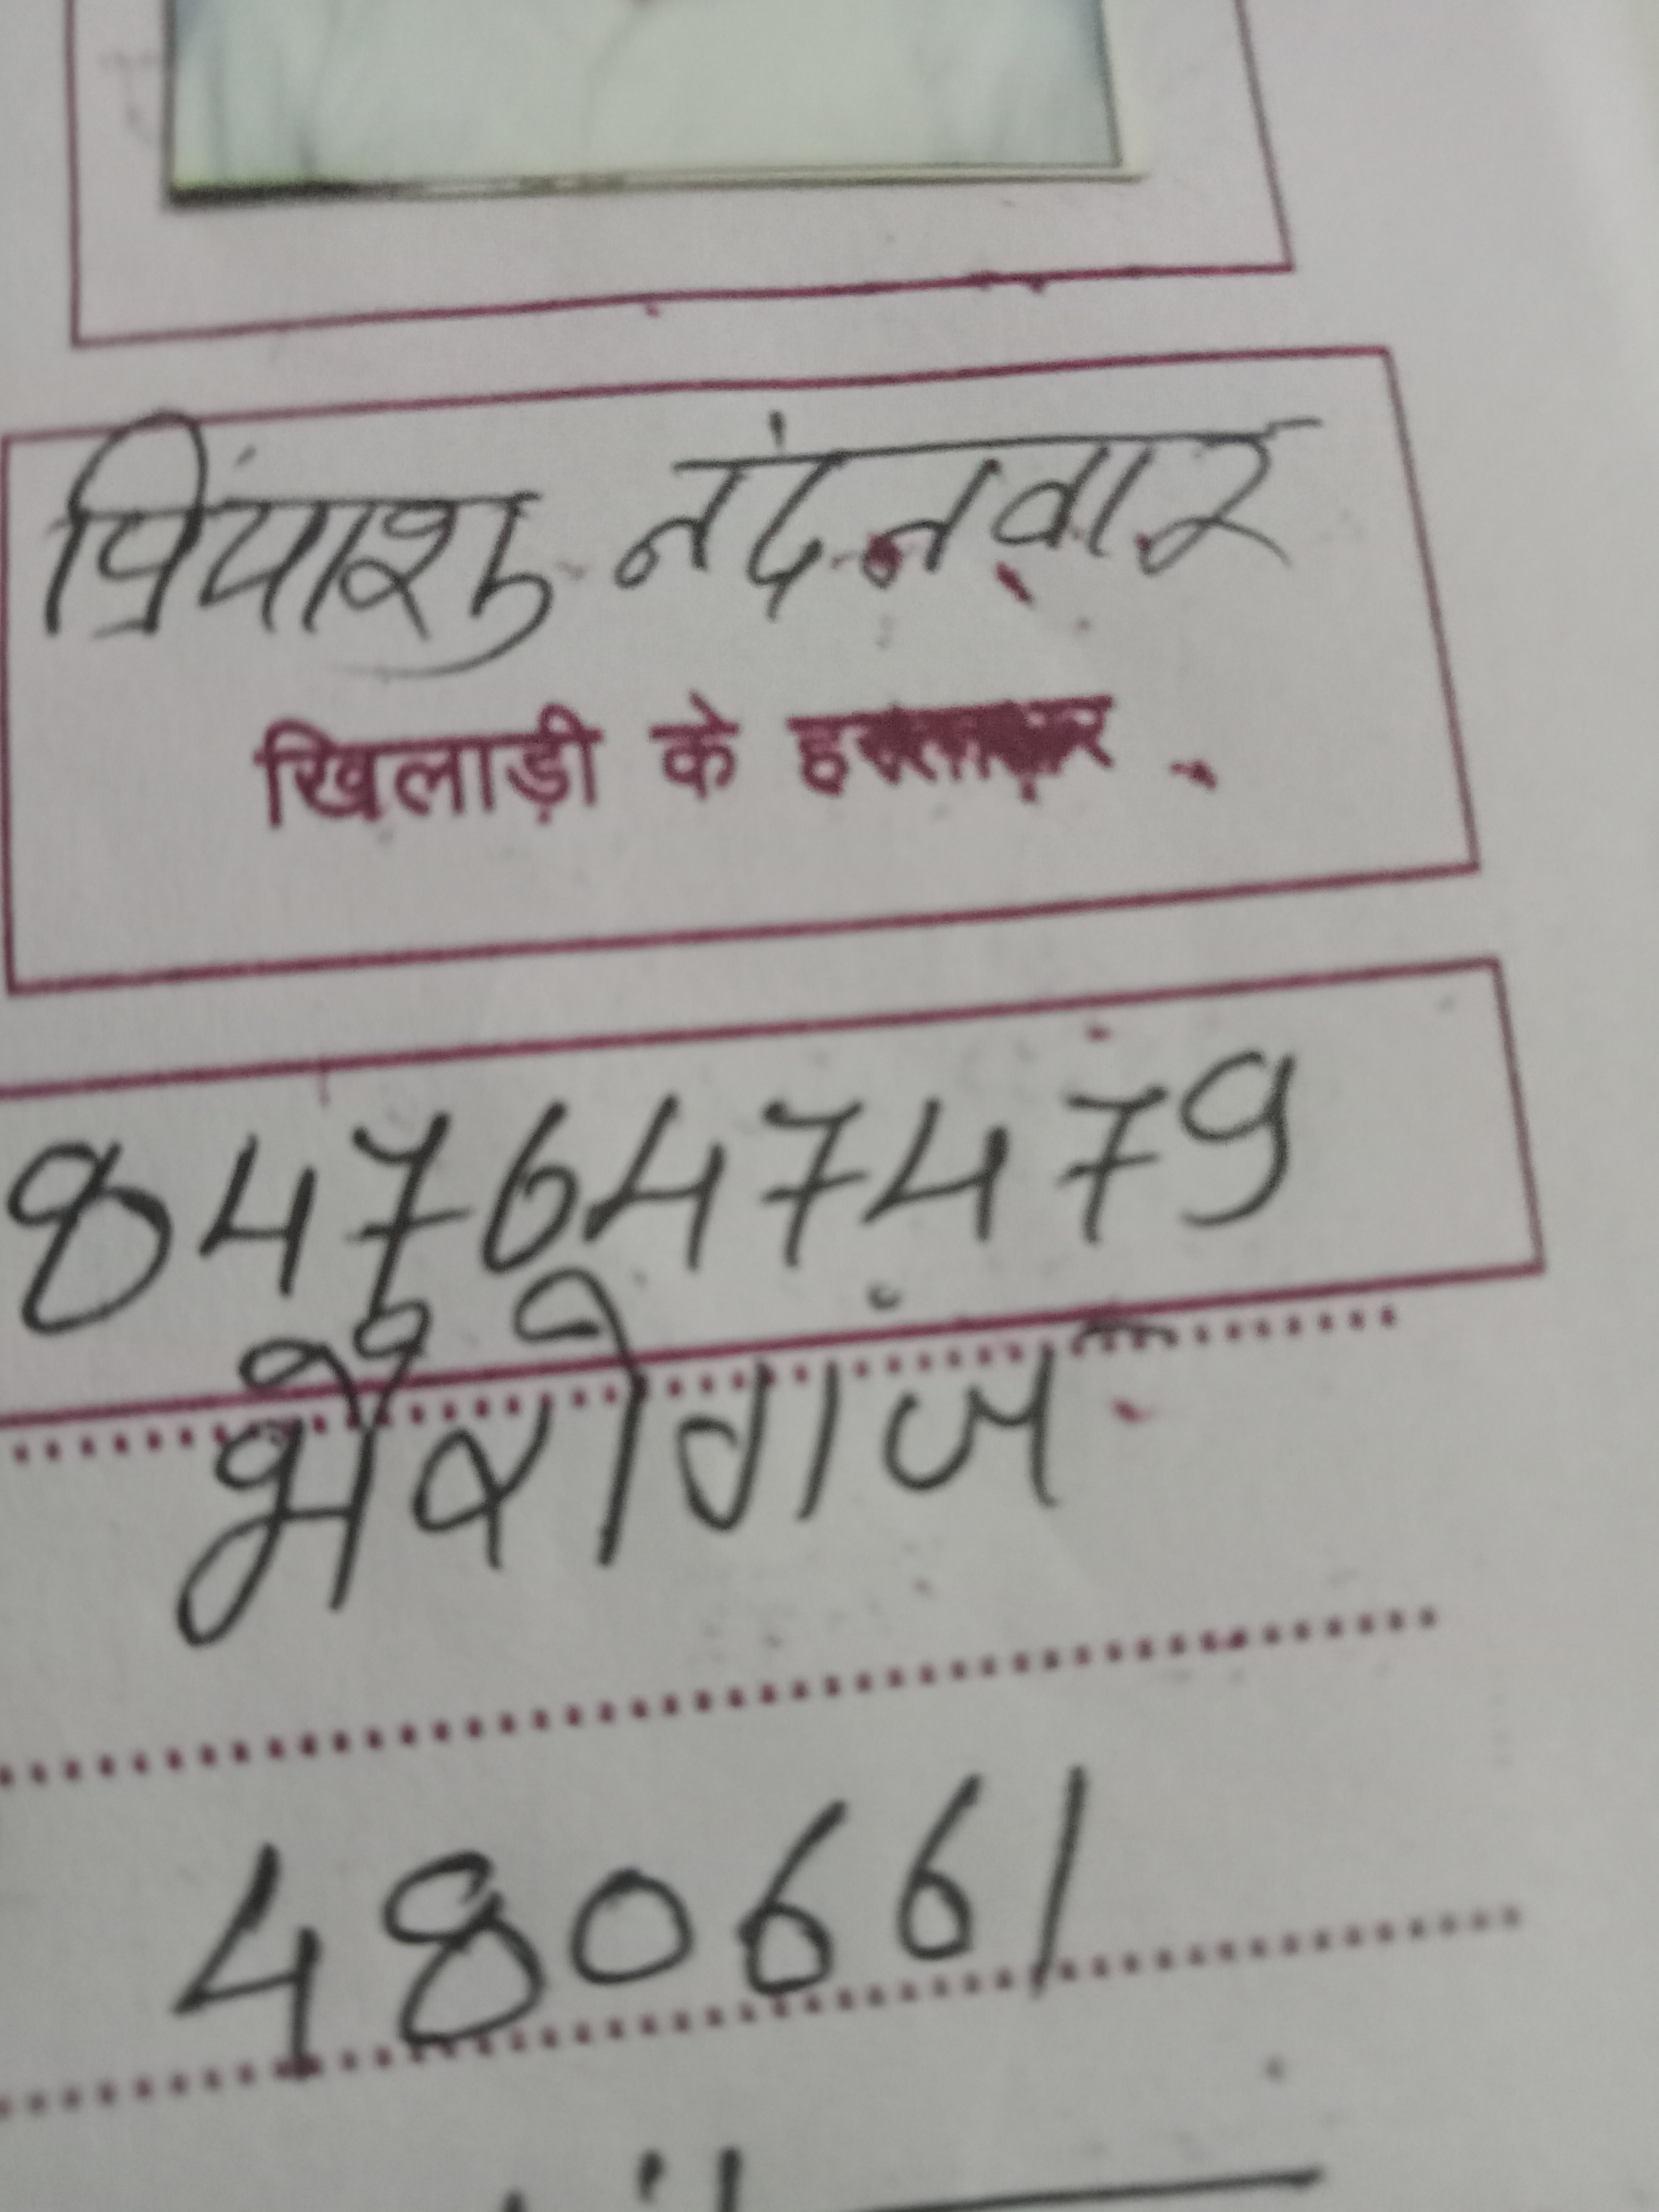 प्रियांशु नंदनवार
खिलाड़ी के हस्ताक्षर
8476474479
भैरोगंज
480661